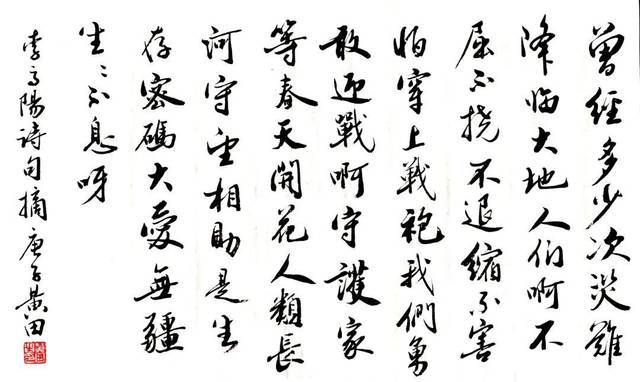 曾經多少次災難
降临大地人们啊不
屈不撓不退缩不害
怕穿上战袍我們勇
敢迎戰啊守護家
等春天開花人類長
河守望相助是生
存密碼大愛無疆
生々不息呀
李高陽詩句摘庚子黄田